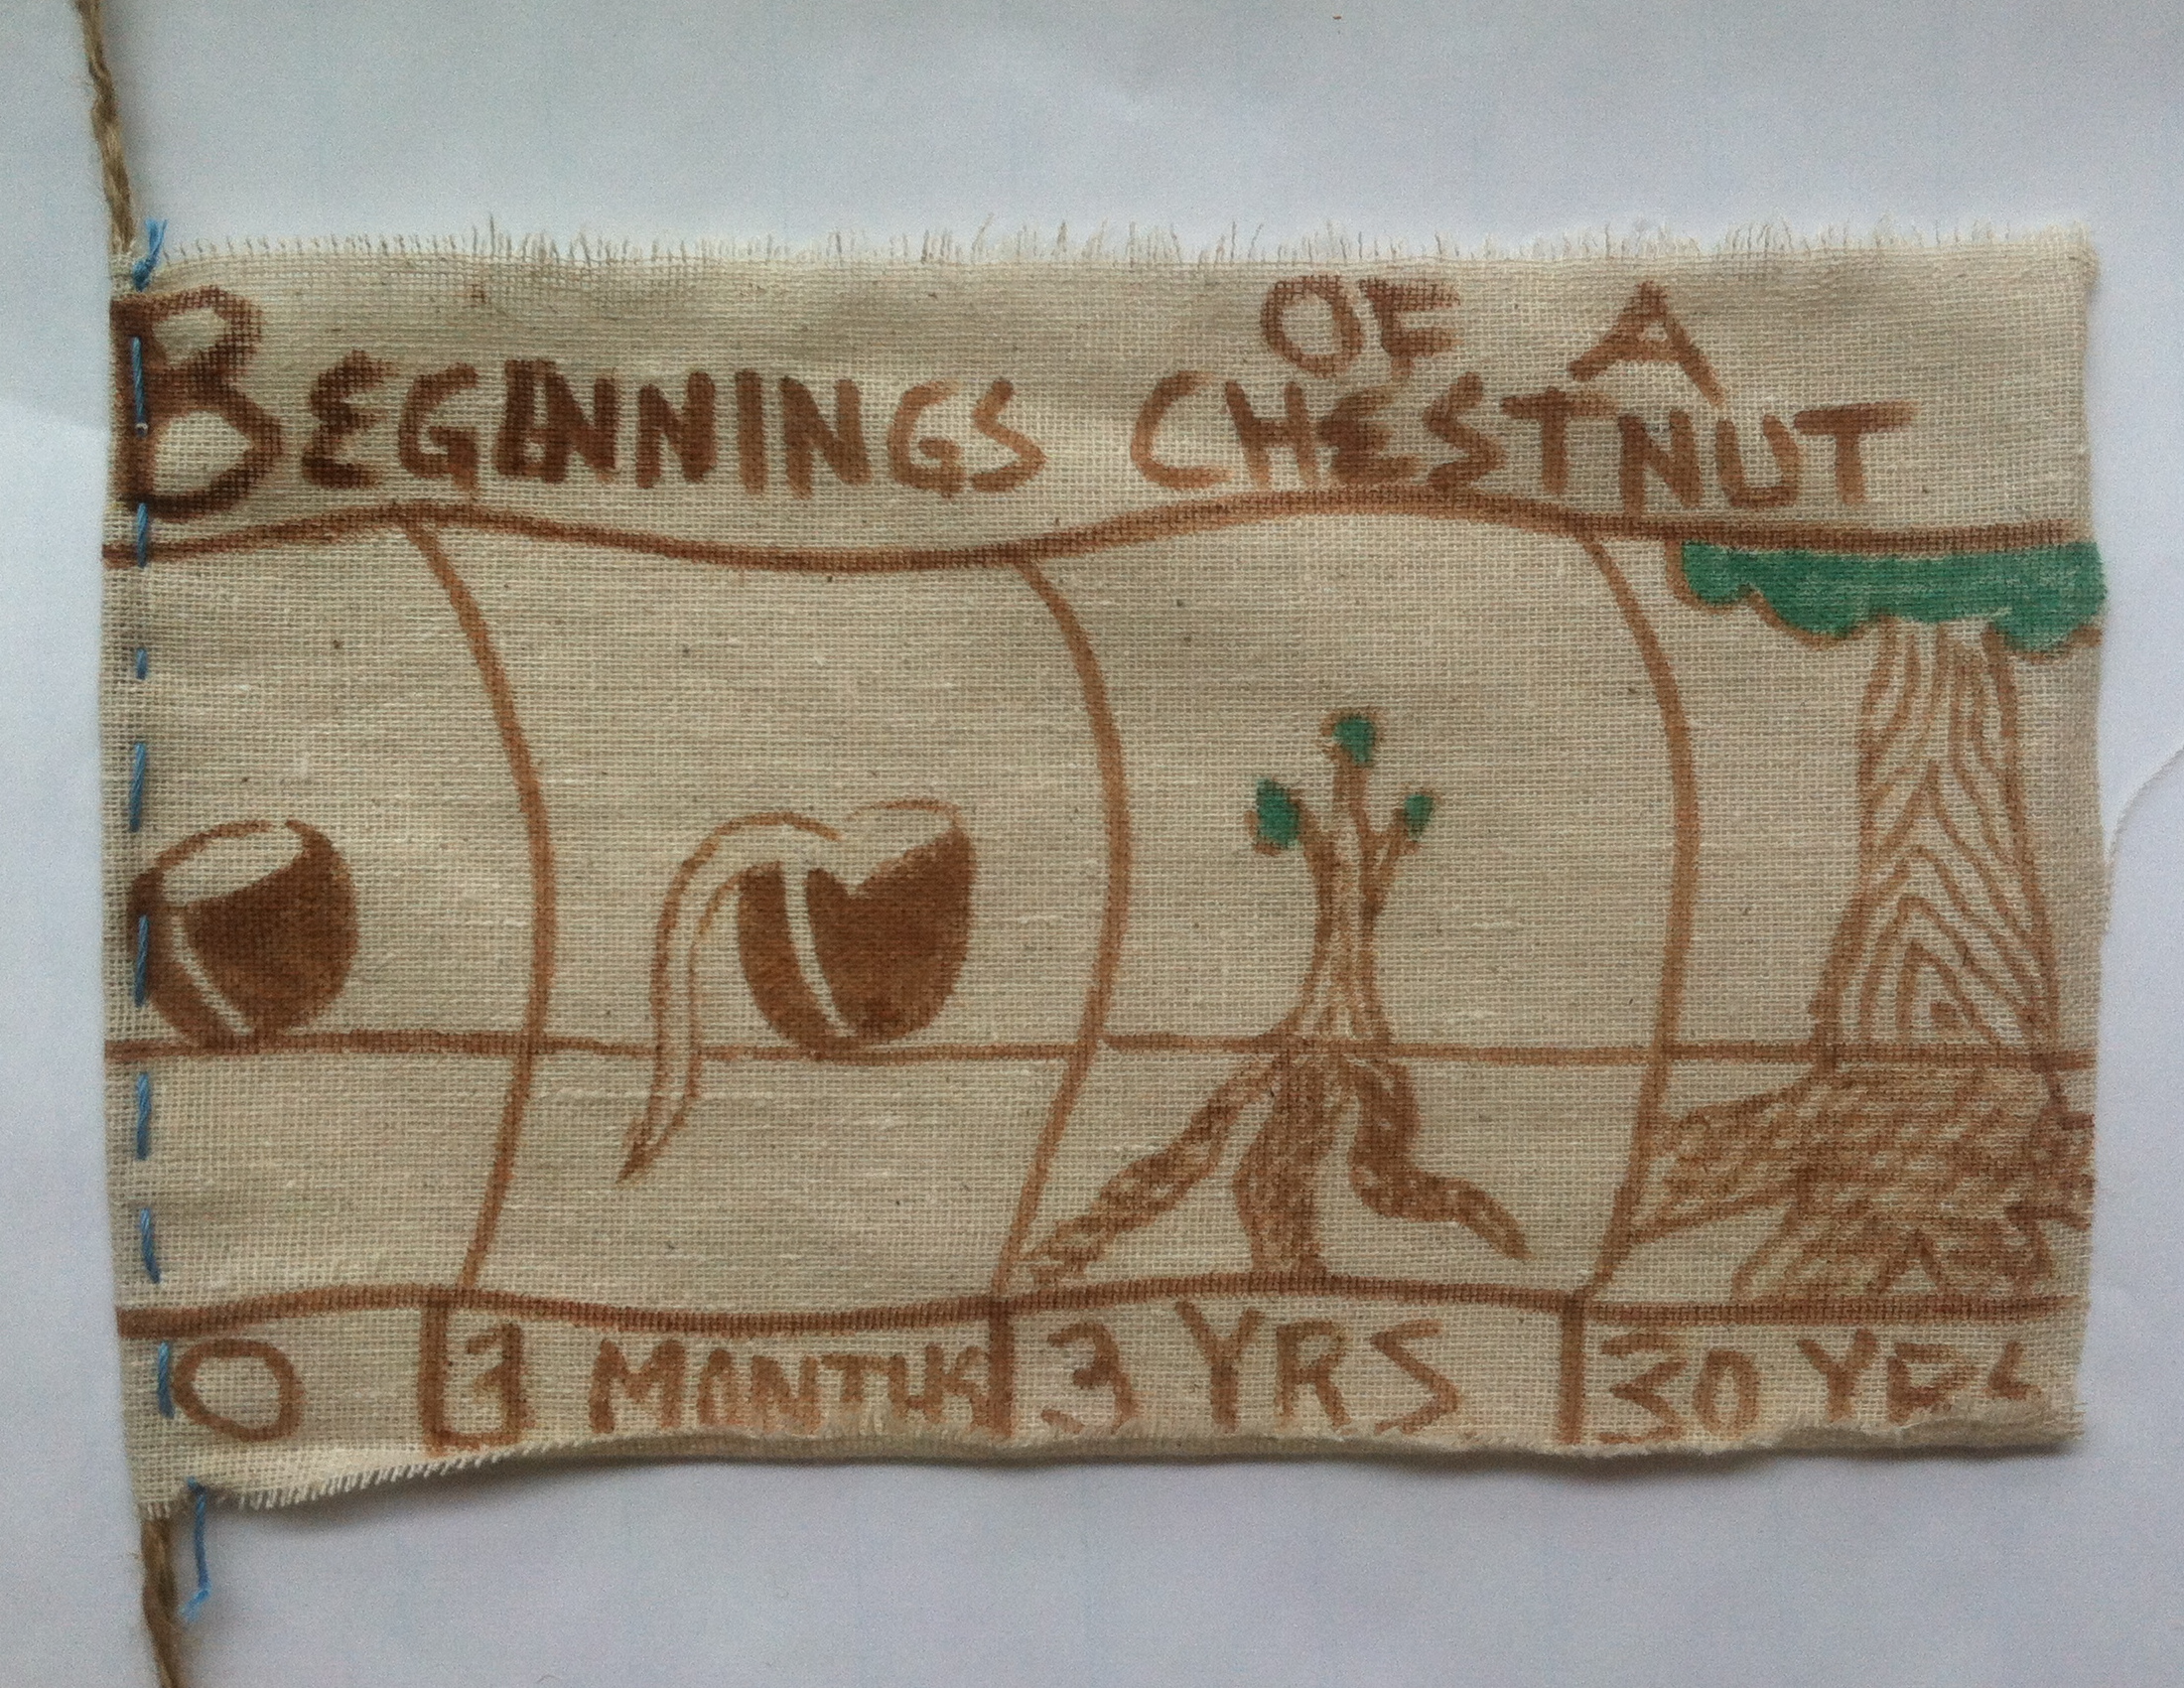 BEGINNINGS
OF A
CHESTNUT
0
3 MONTHS
3 YRS
30 YRS